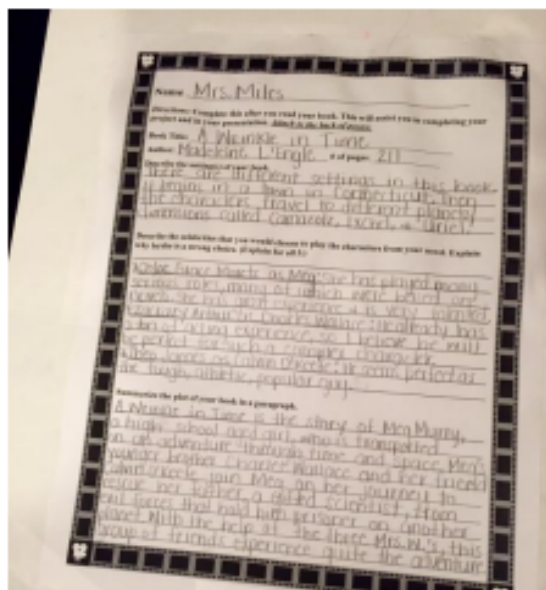 Name Mrs. Miles
Directions: Complete this after you read your book. This will assist you in completing your
project and in your presentation.
Book Title: A Wrinkle in Time
Author: Madeleine L'Engle # of pages: 211
Describe the settings of your book.
There are different settings in this book.
It begins in a town in Connecticut. Then
the characters travel to different planets/
dimensions called Camazotz, Ixchel, Uriel.
Describe the actor/actress that you would choose to play the characters from your novel. Explain
why he/she is a strong choice.
Chloe Grace Moretz as Meg: She has played many
serious roles, many of which were based on
novels. She has great experience & is very talented.
Charles Wallace: He already has
a ton of acting experience, so I believe he will
be perfect for such a complex character.
as Calvin O'Keefe: He seems perfect as
the tough, athletic, popular guy.
Summarize the plot of your book in a paragraph.
A Wrinkle in Time is the story of Meg Murry,
a high school aged girl, who is transported
on an adventure through time and space. Meg's
younger brother Charles Wallace and her friend
Calvin O'Keefe join Meg on her journey to
rescue her father, a gifted scientist, from
evil forces that hold him prisoner on another
planet. With the help of the three Mrs. W.'s, this
group of friends experience quite the adventure